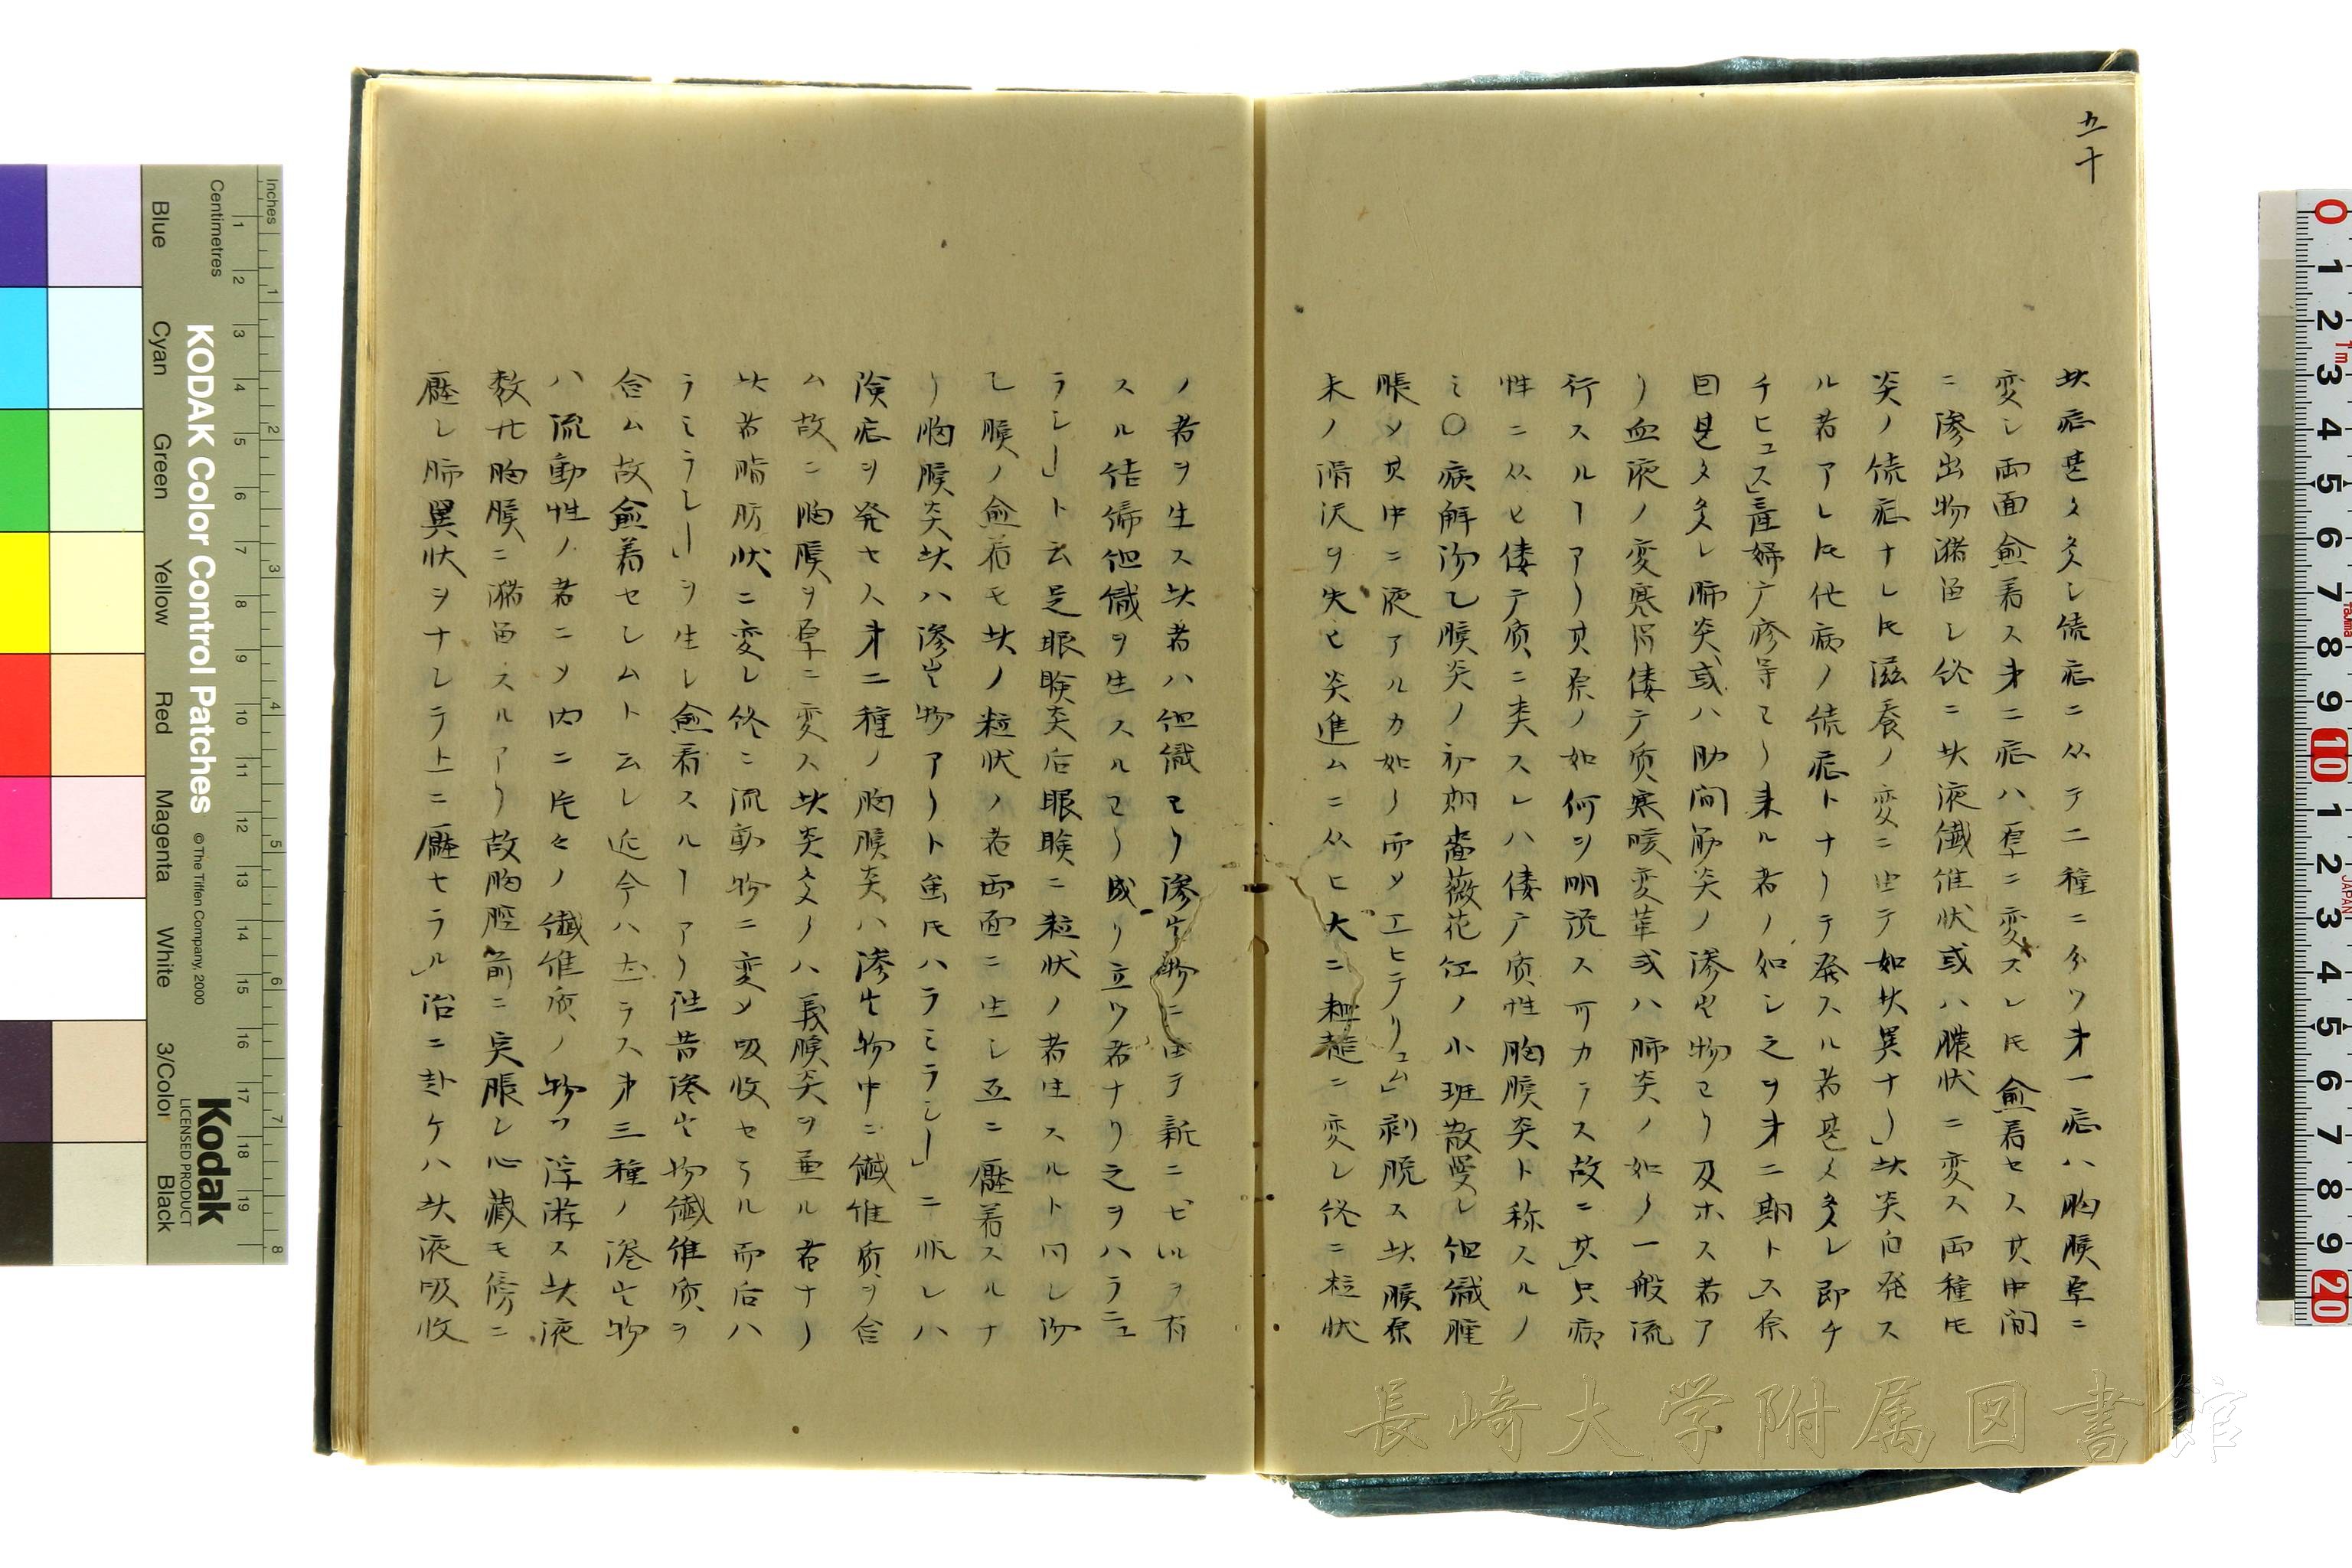 五十
此症甚タ多シ続症ニ从テ二種ニ分ツ才一症ハ胸膜早ニ
変シ両面愈着ス才二症ハ早ニ変スレ𪜈愈着セス其中間
ニ滲出物瀦畄シ終ニ其液繊維状或ハ膿状ニ変ス両種𪜈
炎ノ続症ナレ𪜈滋養ノ変ニ由テ如此異ナリ」此炎自発ス
ル者アレ𪜈他病ノ続症トナリテ発スル者甚タ多シ即チ
チヒュス」産婦疹等ヨリ来ル者ノ如シ之ヲ才二期トス」原
因甚タ多シ肺炎或ハ肋間筋炎ノ滲出物ヨリ及ホス者ア
リ血液ノ変寒質倭テ質寒暖変革或ハ肺炎ノ如ク一般流
行スルヿアリ其原ノ如何ヲ明説ス可カラス故ニ其」只病
性ニ从ヒ倭テ質ニ类スレハ倭テ質性胸膜炎ト称スルノ
ミ〇病解汐乙膜炎ノ初期薔薇花红ノ小斑散蔓シ細織腫
脹ソ其中ニ液アルカ如ク而ソエヒテリュム」剥脱ス此膜原
来ノ滑沢ヲ失ヒ炎進ムニ从ヒ大ニ粗糙ニ変シ終ニ粒状
ノ者ヲ生ス此者ハ細織ヨリ滲出物ニ由テ新ニビルヲ有
スル結締細織ヲ生スルヨリ成リ立ツ者ナリ之ヲハラニュ
ラシー」ト云是眼瞼炎后眼瞼ニ粒状ノ者生スルト同シ汐
乙膜ノ愈着モ此ノ粒状ノ者両面ニ生シ互ニ壓着スルナ
リ胸膜炎此ハ滲出物アリト虽𪜈ハラミラシー」ニ帰レハ
険症ヲ発セス才二種ノ胸膜炎ハ滲出物中ニ繊維质ヲ含
ム故ニ胸膜ヲ早ニ変ス此炎多クハ義膜炎ヲ亜ル者ナリ
此者脂肪状ニ変シ終ニ流動物ニ変ソ吸收セラル而后ハ
ラミラシー」ヲ生シ愈着スルヿアリ往昔滲出物繊維质ヲ
含ム故愈着セシムト云シ近今ハ去ラス才三種ノ滲出物
ハ流動性ノ者ニソ内ニ片々ノ繊維质ノ物ヲ浮游ス此液
数廿胸膜ニ瀦畄スルアリ故胸腔前ニ突脹シ心藏モ傍ニ
壓シ肺異状ヲナシテ上ニ壓セラル」治ニ赴ケハ此液吸收
長崎大学附属図書館
KODAK Color Control Patches
© The Tiffen Company, 2000
Kodak
LICENSED PRODUCT
Inches
Centimetres
Blue
Cyan
Green
Yellow
Red
Magenta
White
3/Color
Black